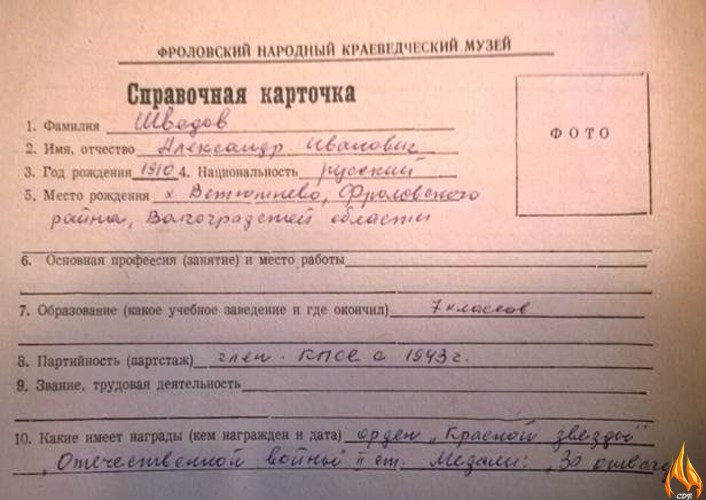 ФРОЛОВСКИЙ НАРОДНЫЙ КРАЕВЕДЧЕСКИЙ МУЗЕЙ
Справочная карточка
ФОТО
1. Фамилия Шведов
2. Имя, отчество Александр Иванович
3. Год рождения 1910 4. Национальность русский
5. Место рождения х Ветютнево, Фроловского
района, Волгоградской области
6. Основная профессия (занятие) и место работы
7. Образование (какое учебное заведение и где окончил) 7 классов
8. Партийность (партстаж) член - КПСС с 1943 г.
9. Звание, трудовая деятельность
10. Какие имеет награды (кем награжден и дата) орден „Красной звезды"
„Отечественной войны" II ст. Медали: „За отвагу
СРЛ